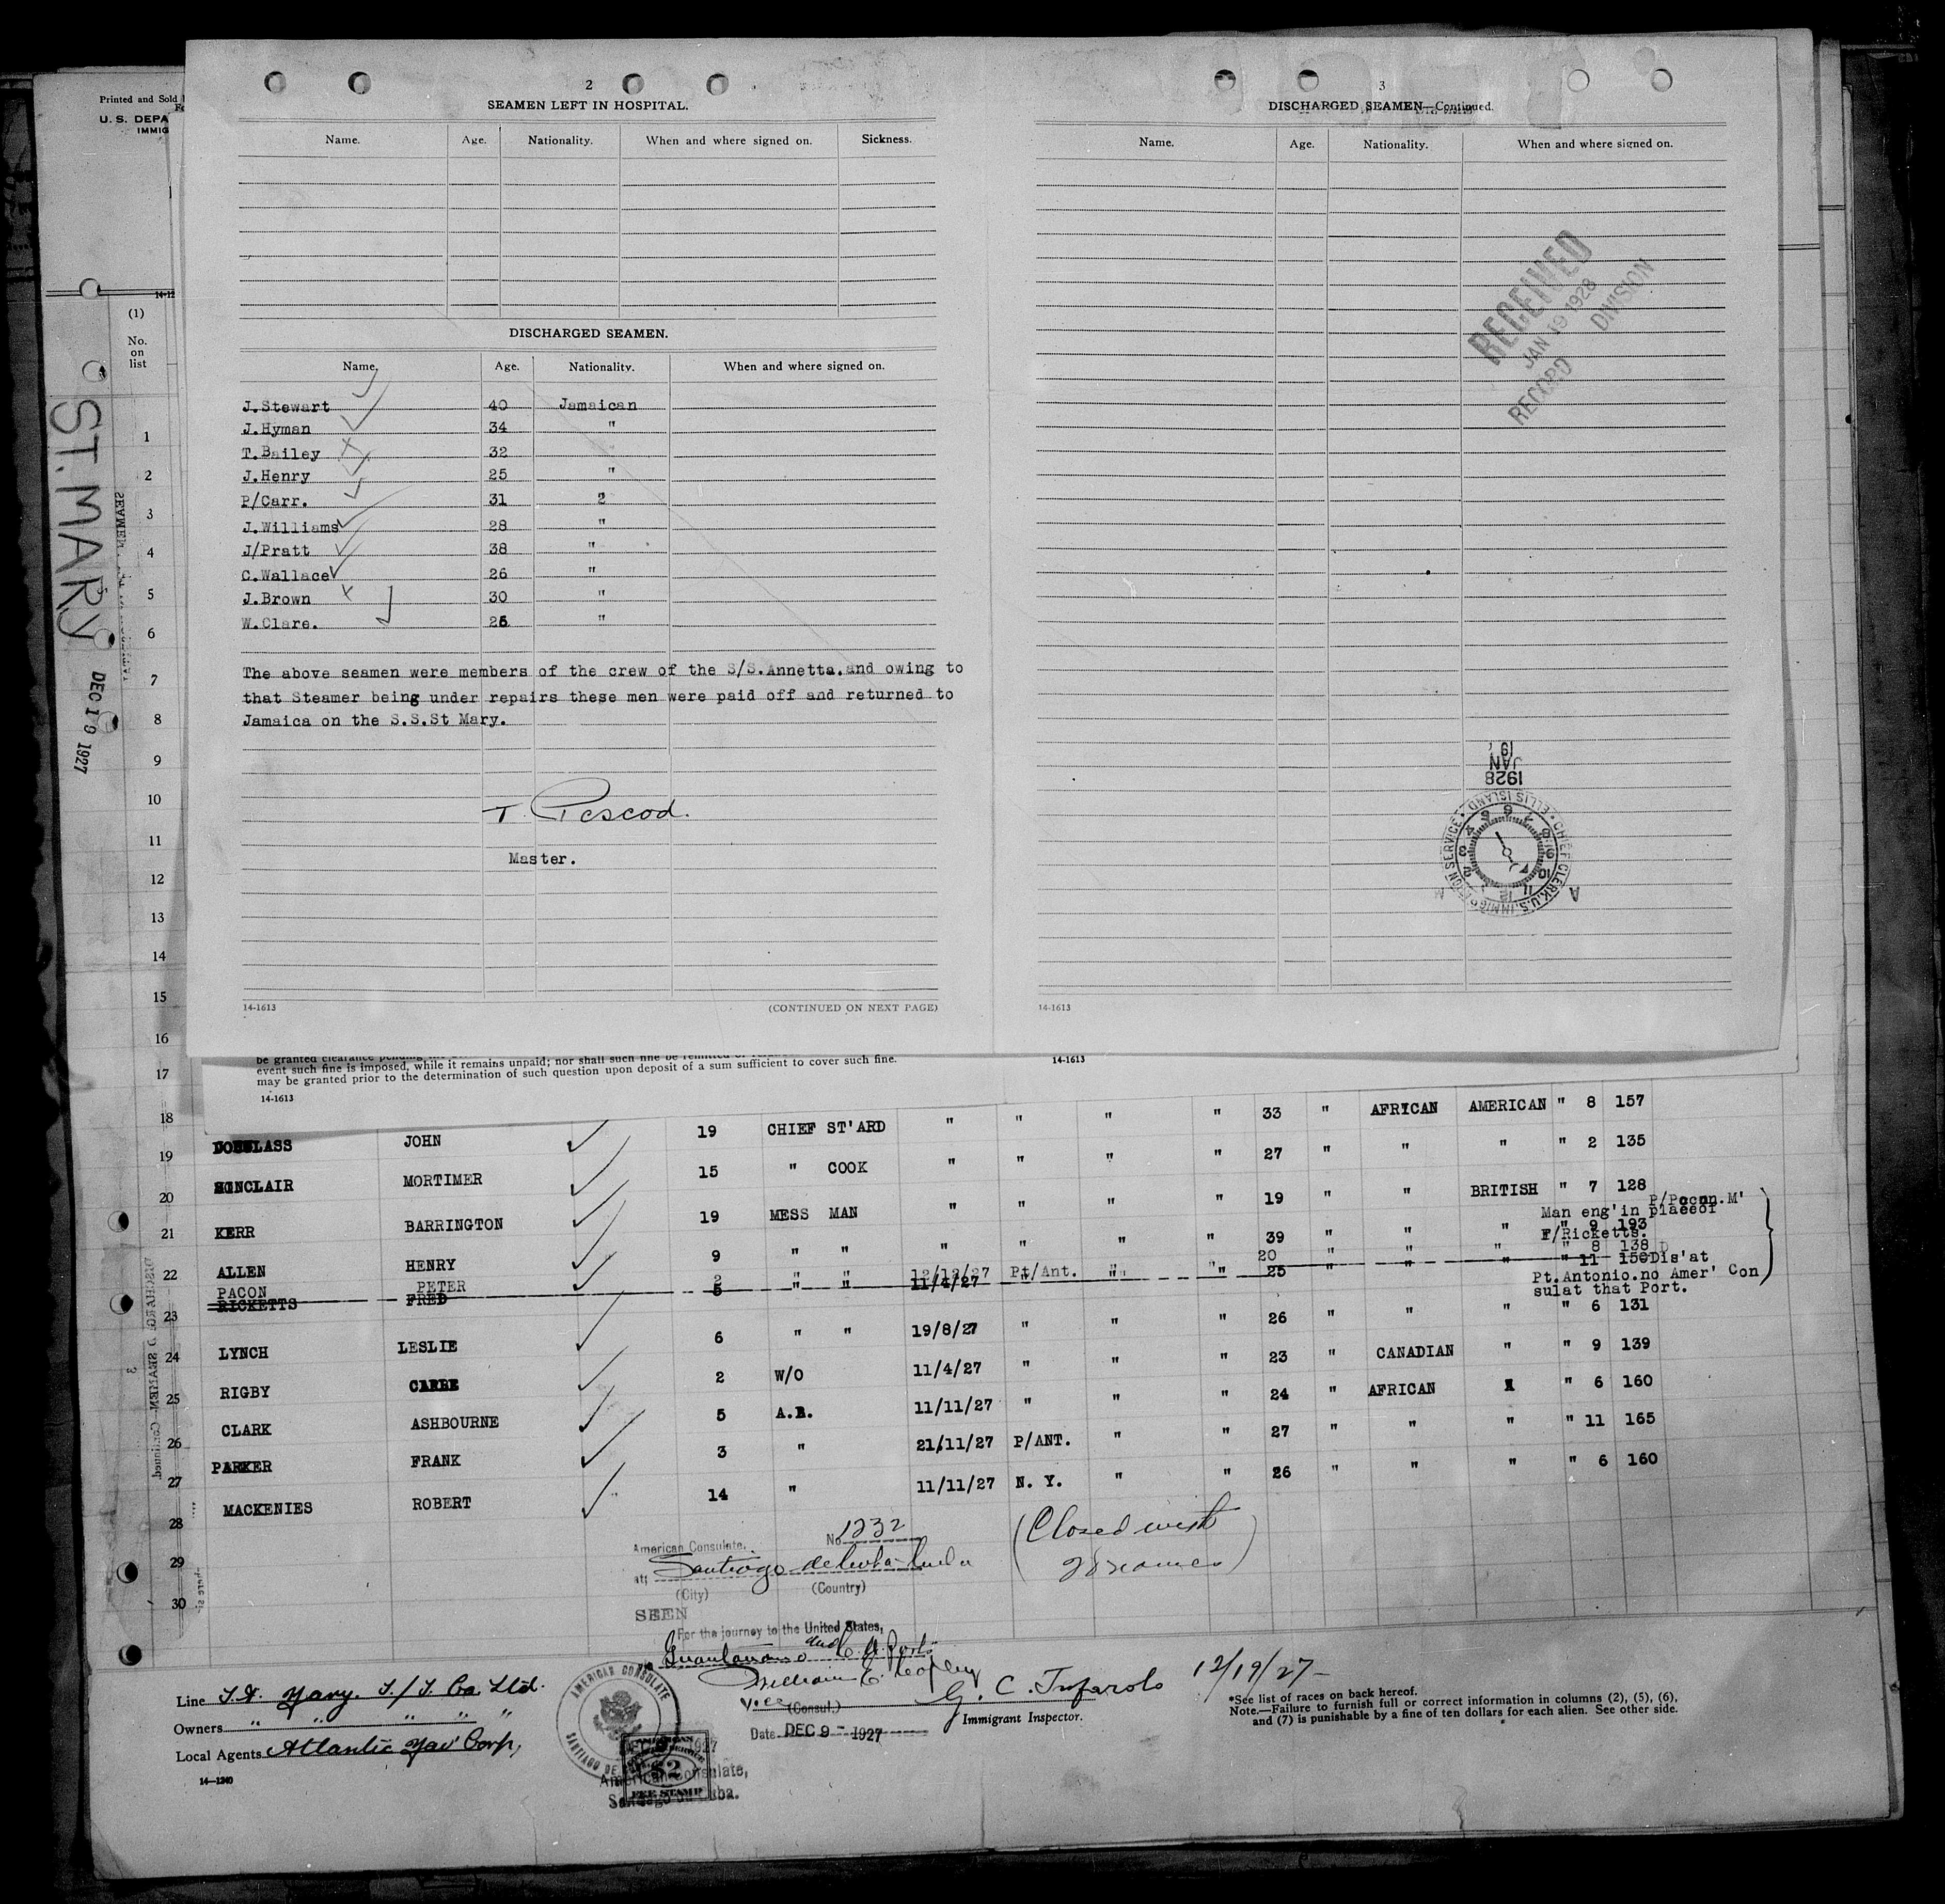 Printed and Sold
U. S. DEPA
IMMIG
14-12
(1)
No.
on
list
ST. MARY
DEC 19 1927
2
SEAMEN LEFT IN HOSPITAL.
Name. Age. Nationality. When and where signed on. Sickness.
DISCHARGED SEAMEN.
Name. Age. Nationality. When and where signed on.
J.Stewart 40 Jamaican
J.Hyman 34 "
T.Bailey 32
J.Henry 25 "
P/Carr. 31 2
J.Williams 28 "
J/Pratt 38 "
C.Wallace 26 "
J.Brown 30 "
W.Clare. 26 "
The above seamen were members of the crew of the S/S.Annetta.and owing to
that Steamer being under repairs these men were paid off and returned to
Jamaica on the S.S.St Mary.
T. Pescod.
Master.
14-1613 (CONTINUED ON NEXT PAGE)
3
DISCHARGED SEAMEN—Continued.
Name. Age. Nationality. When and where signed on.
RECEIVED
JAN 19 1928
RECORD DIVISION
19,
JAN
1928
CHIEF CLERK, U.S. IMMIGRATION SERVICE • ELLIS ISLAND •
14-1613
1
2
3
4
5
6
7
8
9
10
11
12
13
14
15
16
17
event such fine is imposed, while it remains unpaid; nor shall such fine be remitted
may be granted prior to the determination of such question upon deposit of a sum sufficient to cover such fine.
14-1613
14-1613
18 DOUGLASS JOHN 19 CHIEF ST'ARD " " " " 33 " AFRICAN AMERICAN " 8 157
19 SINCLAIR MORTIMER 15 " COOK " " " " 27 " " " " 2 135
20 KERR BARRINGTON 19 MESS MAN " " " " 19 " " BRITISH " 7 128
21 ALLEN HENRY 9 " " " " " " 39 " " " " 9 193
22 PACON PETER 2 " " 12/12/27 Pt/Ant. " " 20 " " " " 8 138
RICKETTS FRED 5 " " 11/4/27 " " " 25 " " " " 11 150 Dis'at
Man eng'in placeof
F/Ricketts.
Pt.Antonio.no Amer' Con
sulat that Port.
23 LYNCH LESLIE 6 " " 19/8/27 " " " 26 " " " " 6 131
24 RIGBY 2 W/O 11/4/27 " " " 23 " CANADIAN " " 9 139
25 CLARK ASHBOURNE 5 A.B. 11/11/27 " " " 24 " AFRICAN " 6 160
26 PARKER FRANK 3 " 21/11/27 P/ANT. " " 27 " " " " 11 165
27 MACKENIES ROBERT 14 " 11/11/27 N. Y. " " 26 " " " " 6 160
28
29
30
American Consulate, No 1232
at Santiago de Cuba Cuba
(City) (Country)
(Closed with
28 names)
SEEN
For the journey to the United States,
Guantanamo and
William E.
Vice (Consul.)
Date DEC 9 - 1927
G. C. Tufarolo 12/19/27
Immigrant Inspector.
AMERICAN CONSULATE
SANTIAGO DE
$2
FEE STAMP
American Consulate,
Santiago de Cuba.
Line S.S. Navy. S./S. Co. Ltd.
Owners " " " " "
Local Agents Atlantic Nav Corp,
14—1240
*See list of races on back hereof.
Note.—Failure to furnish full or correct information in columns (2), (5), (6),
and (7) is punishable by a fine of ten dollars for each alien. See other side.